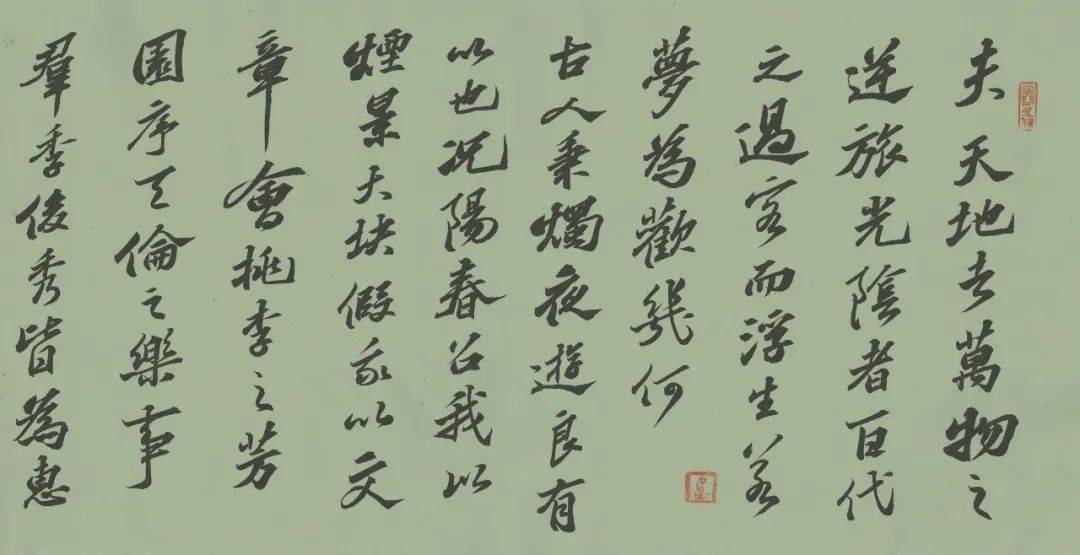 夫天地者萬物之
逆旅光陰者百代
之過客而浮生若
夢為歡幾何
古人秉燭夜遊良有
以也况陽春召我以
煙景大塊假我以文
章會桃李之芳
園序天倫之樂事
羣季俊秀皆為惠